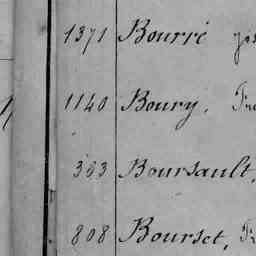 1371 Bourré
1140 Boury, Fr
383 Boursault,
808 Bourset, Fr